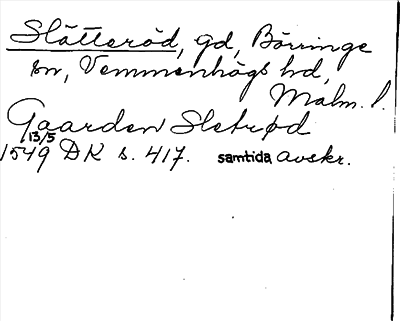 Slätteröd, gd, Börringe
sn, Vemmenhögs hd,
Malm. l.
Gaarden Sletrød
13/5
1549 DK s. 417. samtida avskr.